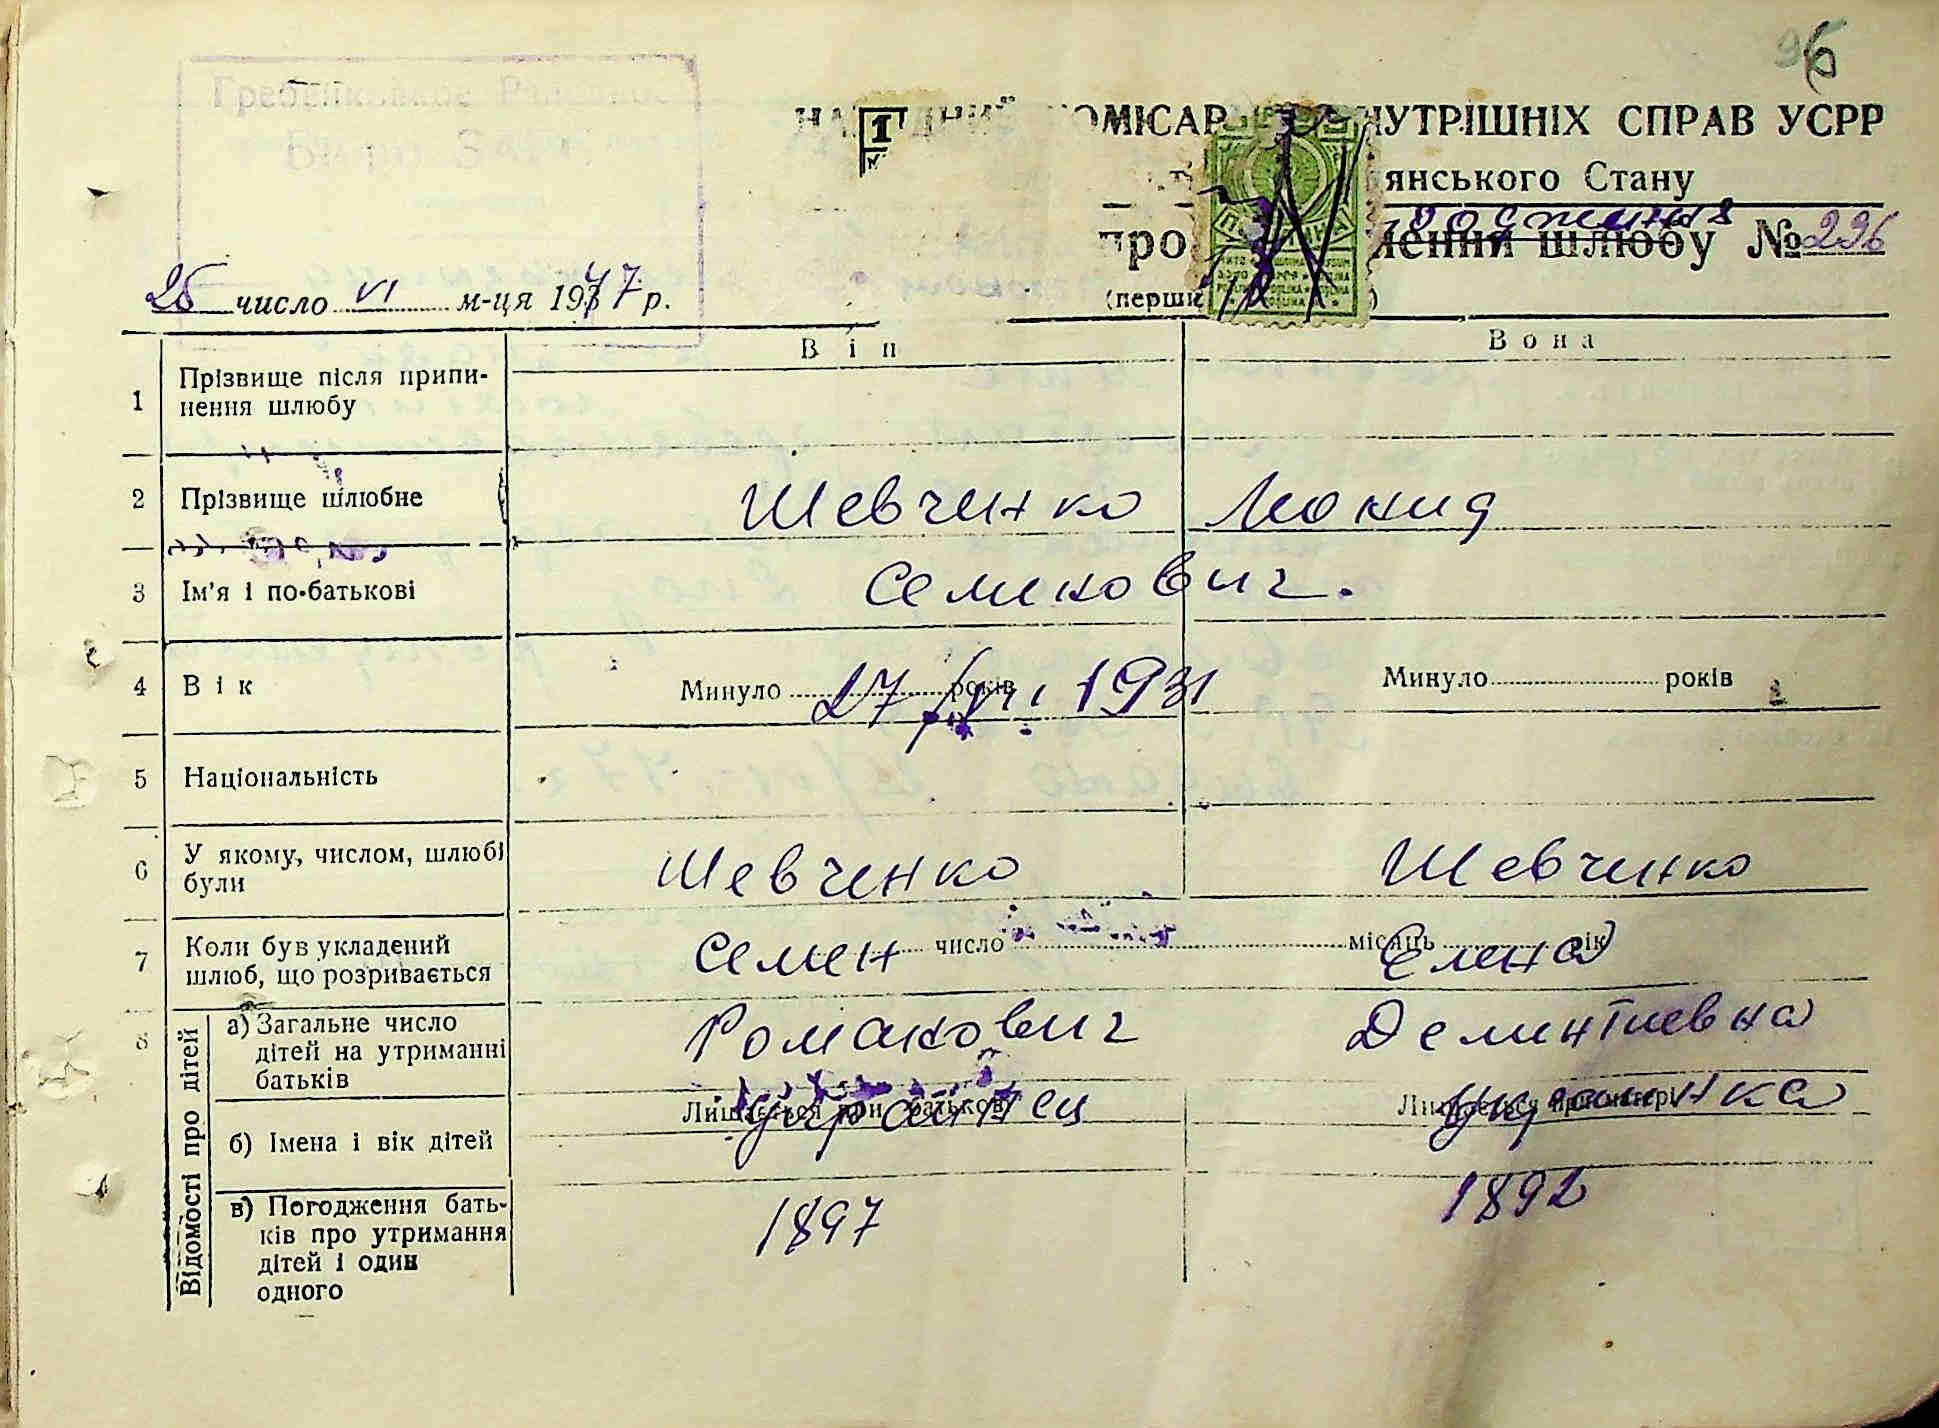 96
Гребенковское
Бюро
НАРОДНИЙ КОМІСАР ВНУТРІШНІХ СПРАВ УСРР
янського Стану
рождения
про лення шлюбу № 296
(перши
1
25 число VI м-ця 1947 р.
Він
Вона
1 Прізвище після припи-
нення шлюбу
2 Прізвище шлюбне Шевченко Леонид
3 Ім'я і по-батькові Семенович.
4 Вік Минуло 27/VII 1931 років Минуло років
5 Національність
6 У якому, числом, шлюбі
були Шевченко Шевченко
7 Коли був укладений
шлюб, що розривається Семен число місяць рік Елена
8 Відомості про дітей
а) Загальне число
дітей на утриманні
батьків
Романович Дементиевна
Лишається при батькові Лишається при матері
украинец украинка
б) Імена і вік дітей
в) Погодження бать-
ків про утримання
дітей і один
одного
1897 1892